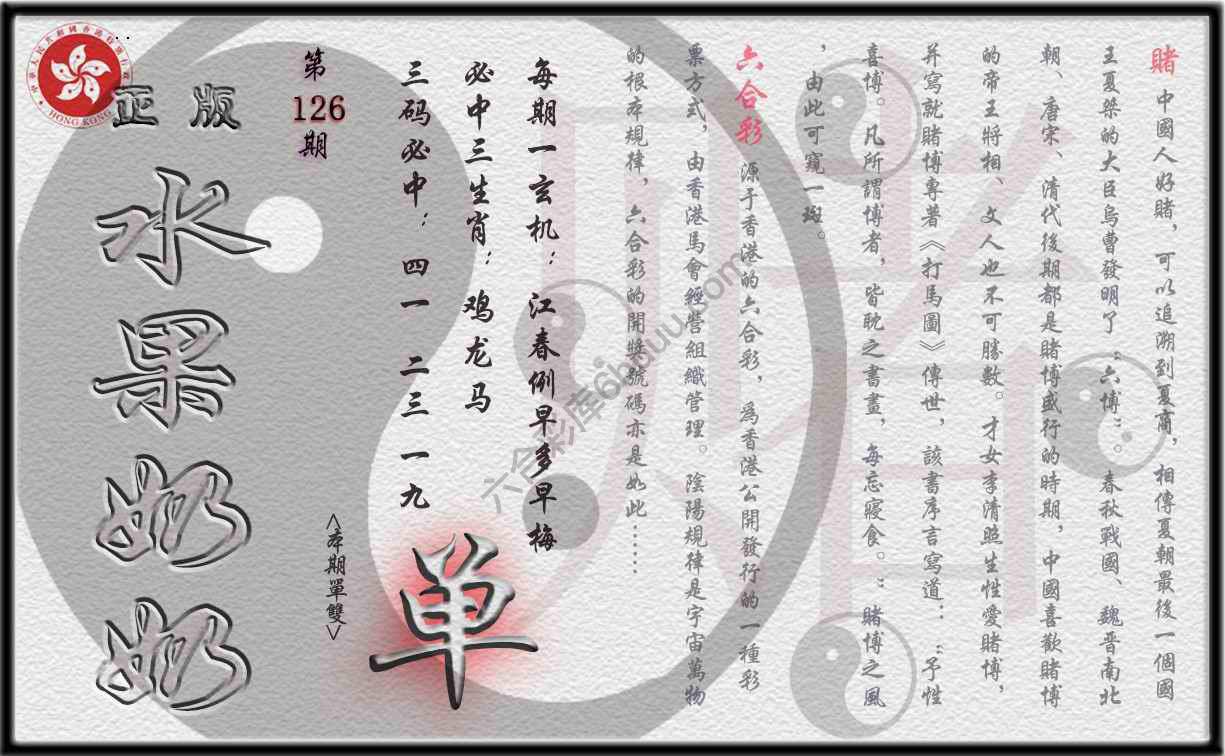 賭 中國人好賭，可以追溯到夏商，相傳夏朝最後一個國
王夏桀的大臣烏曹發明了“六博”。春秋戰國、魏晋南北
朝、唐宋、清代後期都是賭博盛行的時期，中國喜歡賭博
的帝王將相、文人也不可勝數。才女李清照生性愛賭博，
并寫就賭博專著《打馬圖》傳世，該書序言寫道：“予性
喜博。凡所謂博者，皆耽之書畫，每忘寢食。”賭博之風
，由此可窺一斑。
六合彩 源于香港的六合彩，爲香港公開發行的一種彩
票方式，由香港馬會經營組織管理。陰陽規律是宇宙萬物
的根本規律，六合彩的開獎號碼亦是如此……
每期一玄机：江春例早多早梅
必中三生肖：鸡龙马
三码必中：四一 二三 一九
第
126
期
<本期單雙>
单
正版
水果奶奶
中華人民共和國香港特別行政區
HONG KONG
六合彩库6hduuu.com
賭